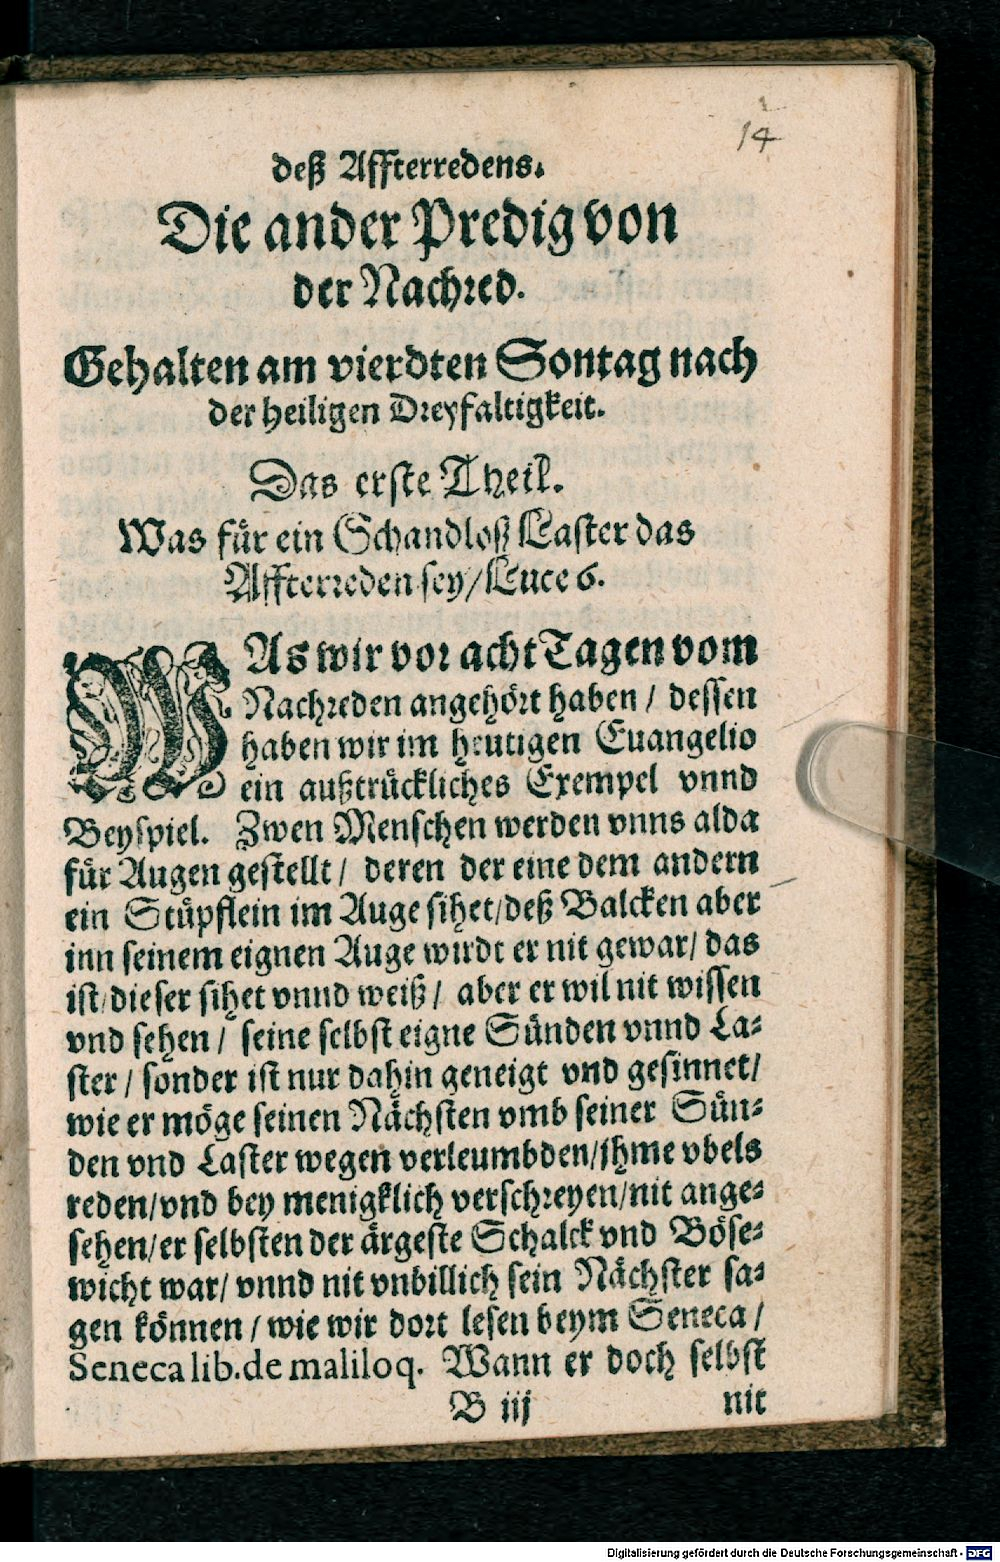 14
deß Affterredens.
Die ander Predig von
der Nachred.
Gehalten am vierdten Sontag nach
der heiligen Dreyfaltigkeit.
Das erste Theil.
Was für ein Schandloß Laster das
Affterreden sey/ Luce 6.
WAs wir vor acht Tagen vom
Nachreden angehört haben / dessen
haben wir im heutigen Euangelio
ein außtrückliches Exempel vnnd
Beyspiel. Zwen Menschen werden vnns alda
für Augen gestellt / deren der eine dem andern
ein Stüpflein im Auge sihet/deß Balcken aber
inn seinem eignen Auge wirdt er nit gewar/ das
ist/dieser sihet vnnd weiß / aber er wil nit wissen
vnd sehen / seine selbst eigne Sünden vnnd La-
ster / sonder ist nur dahin geneigt vnd gesinnet/
wie er möge seinen Nächsten vmb seiner Sün-
den vnd Laster wegen verleumbden/ihme vbels
reden/vnd bey menigklich verschreyen/nit ange-
sehen/er selbsten der ärgeste Schalck vnd Böse-
wicht war/ vnnd nit vnbillich sein Nächster sa-
gen können / wie wir dort lesen beym Seneca /
Seneca lib. de maliloq. Wann er doch selbst
B iij nit
Digitalisierung gefördert durch die Deutsche Forschungsgemeinschaft - DFG